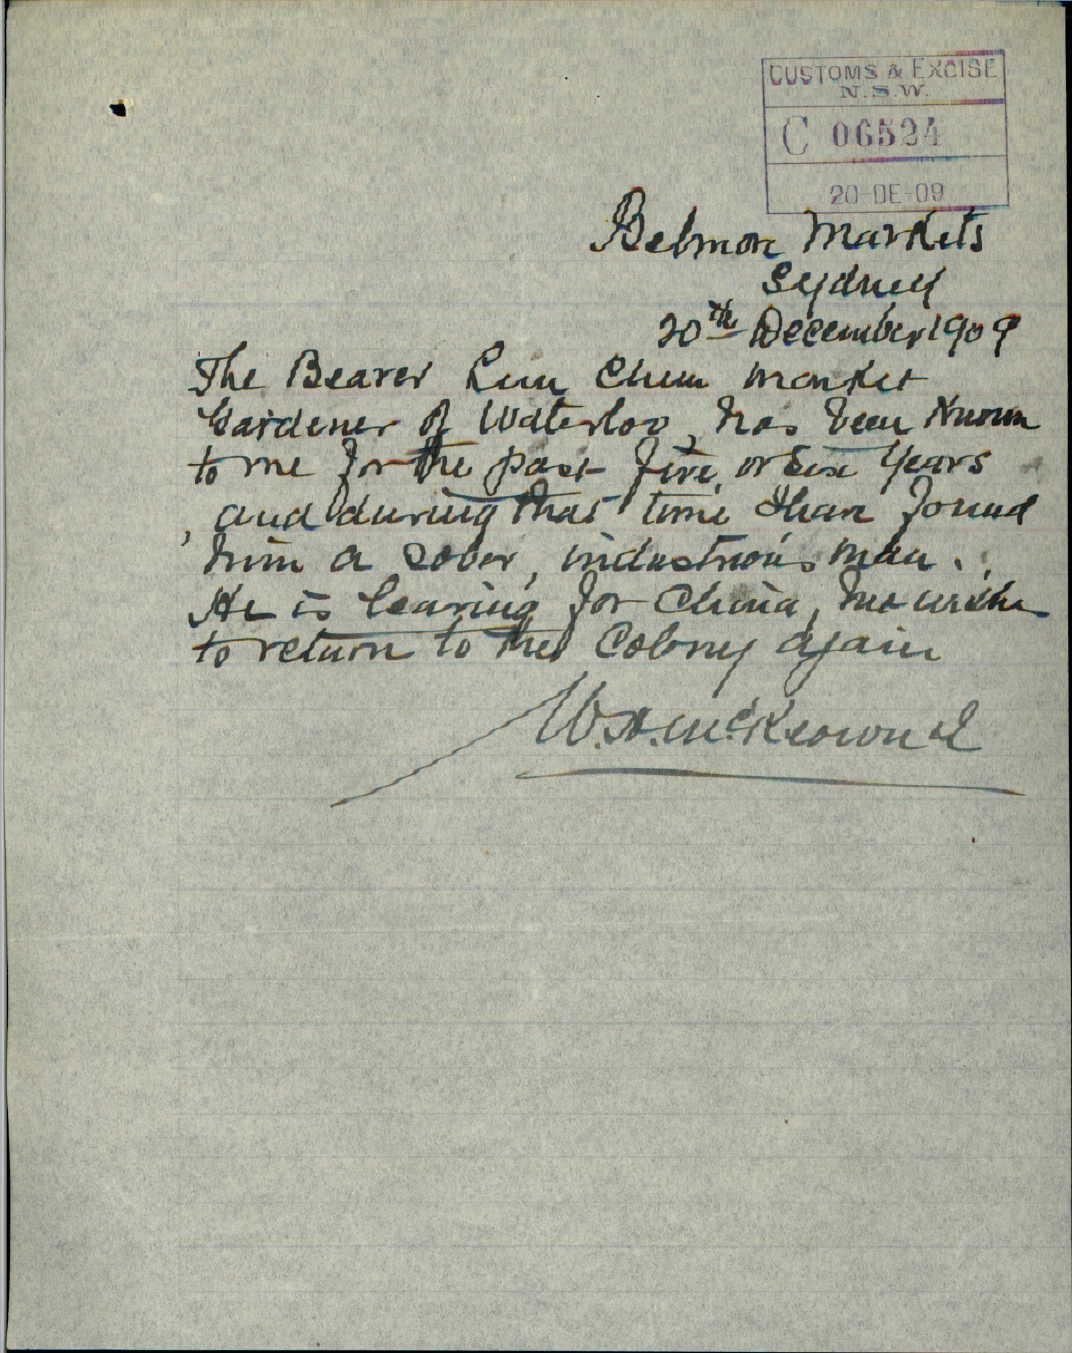 CUSTOMS & EXCISE
N.S.W.
C 06524
20-DE-09
Belmore Markets
Sydney
20th December 1909
The Bearer Chum market
Gardener of Waterloo, has been Known
to me for the past five, or six years
, and during that time I have found
him a sober, industrious man.
He is leaving for China, wishes
to return to the Colony again
W. McKeown